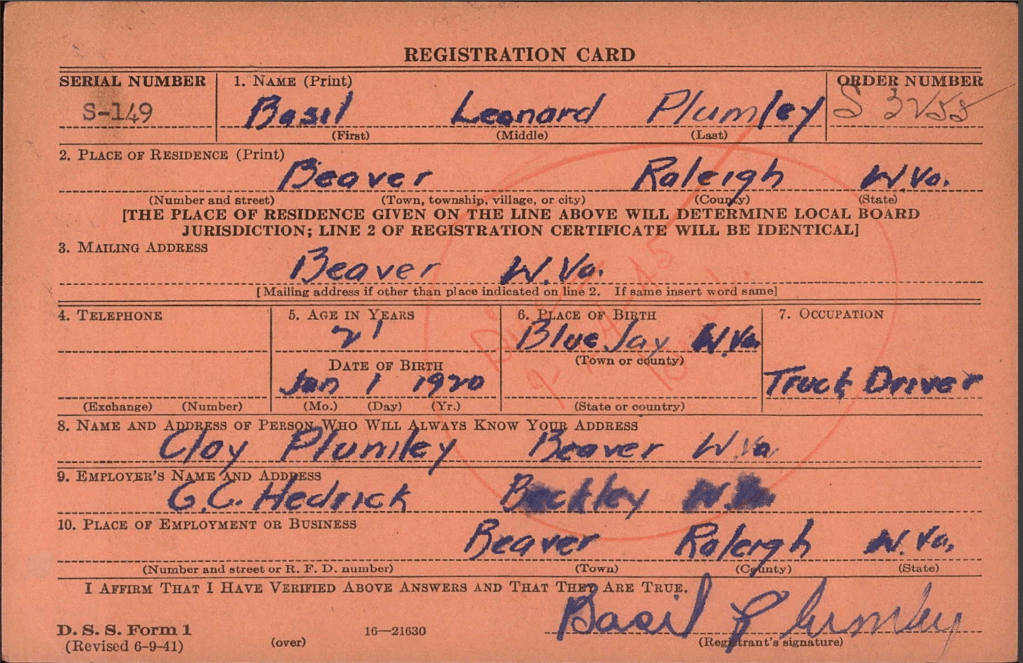 REGISTRATION CARD
SERIAL NUMBER 1. NAME (Print) ORDER NUMBER
S-149 Basil Leonard Plumley S 3255
(First) (Middle) (Last)
2. PLACE OF RESIDENCE (Print)
Beaver Raleigh W.Va.
(Number and street) (Town, township, village, or city) (County) (State)
[THE PLACE OF RESIDENCE GIVEN ON THE LINE ABOVE WILL DETERMINE LOCAL BOARD
JURISDICTION; LINE 2 OF REGISTRATION CERTIFICATE WILL BE IDENTICAL]
3. MAILING ADDRESS
Beaver W.Va.
[Mailing address if other than place indicated on line 2. If same insert word same]
4. TELEPHONE 5. AGE IN YEARS 6. PLACE OF BIRTH 7. OCCUPATION
21 Blue Jay W.Va
DATE OF BIRTH (Town or county)
Jan 1 1920 Truck Driver
(Exchange) (Number) (Mo.) (Day) (Yr.) (State or country)
8. NAME AND ADDRESS OF PERSON WHO WILL ALWAYS KNOW YOUR ADDRESS
Clay Plumley Beaver W.Va
9. EMPLOYER'S NAME AND ADDRESS
G.C. Hedrick Beckley W.Va.
10. PLACE OF EMPLOYMENT OR BUSINESS
Beaver Raleigh W.Va.
(Number and street or R. F. D. number) (Town) (County) (State)
I AFFIRM THAT I HAVE VERIFIED ABOVE ANSWERS AND THAT THEY ARE TRUE.
Basil Plumley
D. S. S. Form 1 16—21630
(Revised 6-9-41) (over) (Registrant's signature)